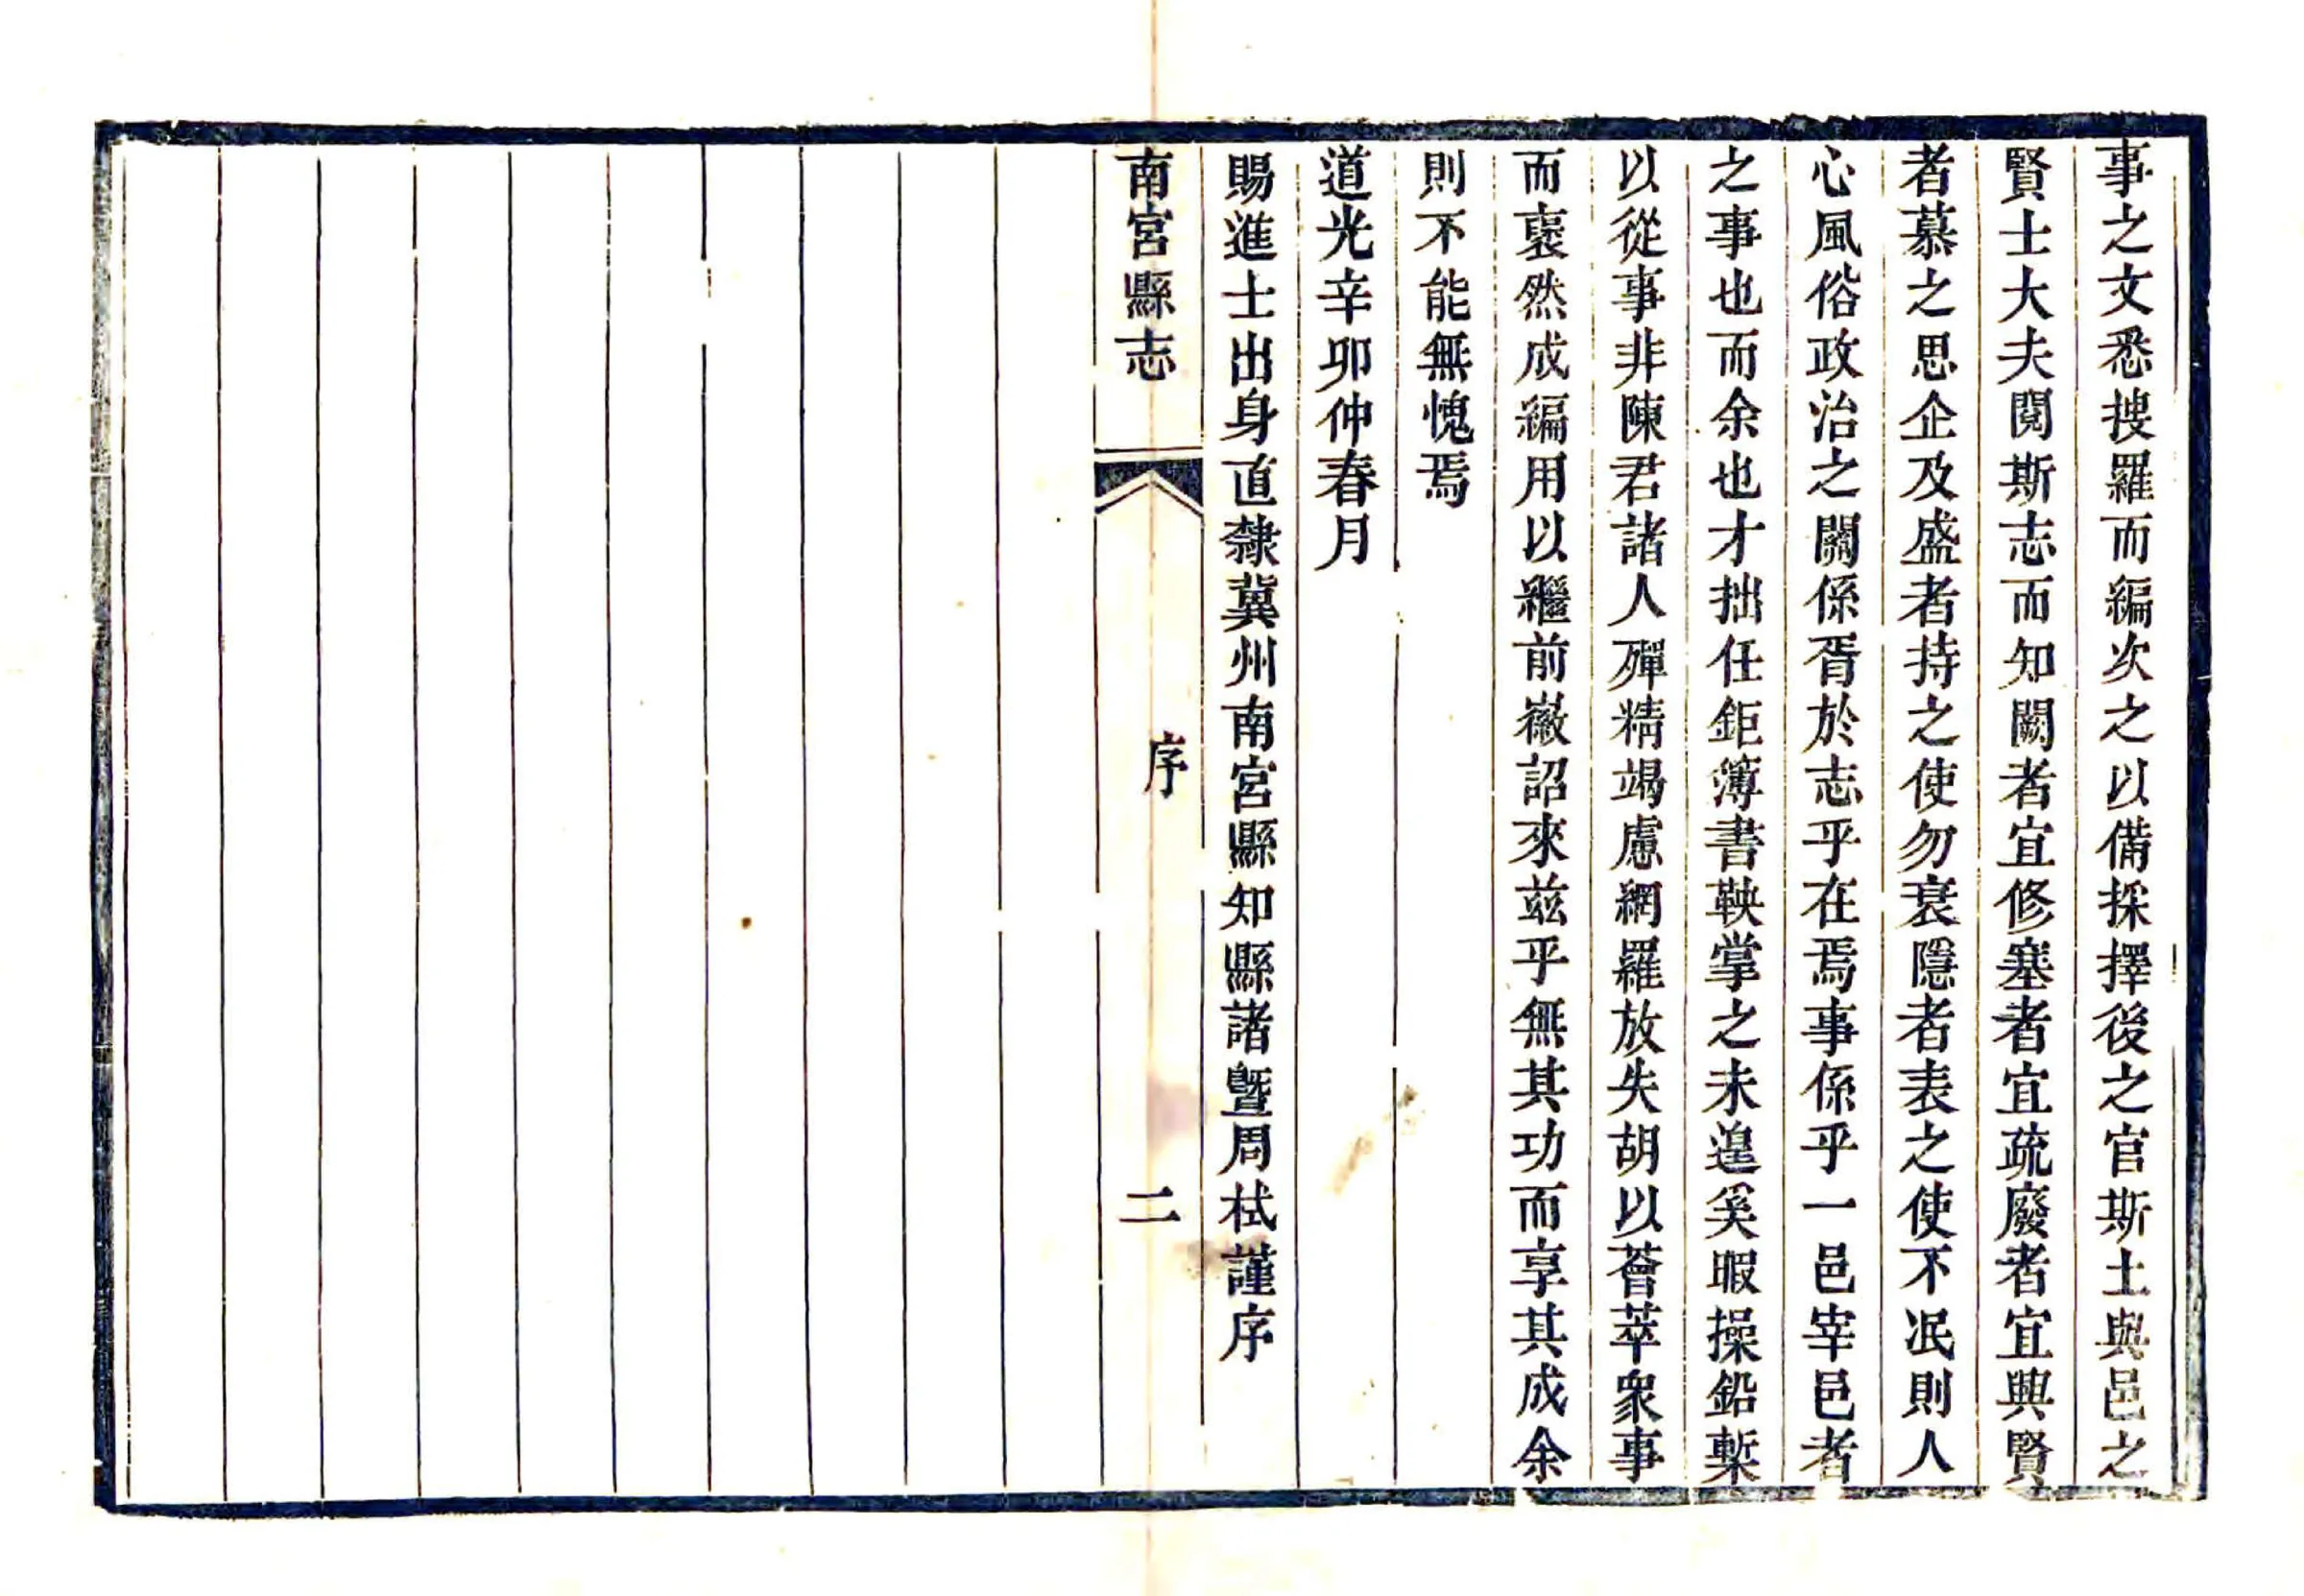 事之文悉搜羅而編次之以備採擇後之官斯土與邑之
賢士大夫閱斯志而知闕者宜修塞者宜疏廢者宜興賢
者慕之思企及盛者持之使勿衰隱者表之使不泯則人
心風俗政治之關係胥於志乎在焉事係乎一邑宰邑者
之事也而余也才拙任鉅簿書鞅掌之未遑奚暇操鉛槧
以從事非陳君諸人殫精竭慮網羅放失胡以薈萃衆事
而裒然成編用以繼前徽詔來兹乎無其功而享其成余
則不能無愧焉
道光辛卯仲春月
賜進士出身直隸冀州南宮縣知縣諸暨周栻謹序
南宮縣志
序
二